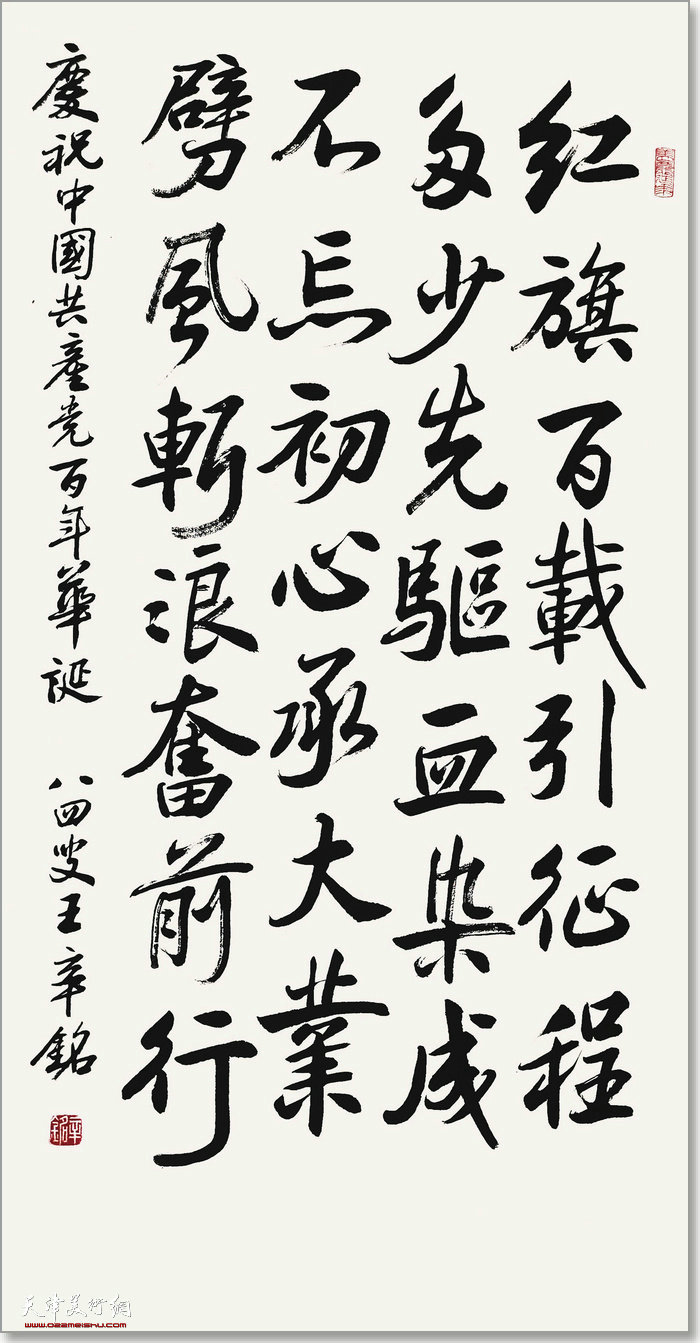 红旗百載引征程
多少先驱血染成
不忘初心承大業
劈風斬浪奮前行
慶祝中國共産党百年華誕 八四叟王辛銘
辛銘
天津美術網
www.022meishu.com